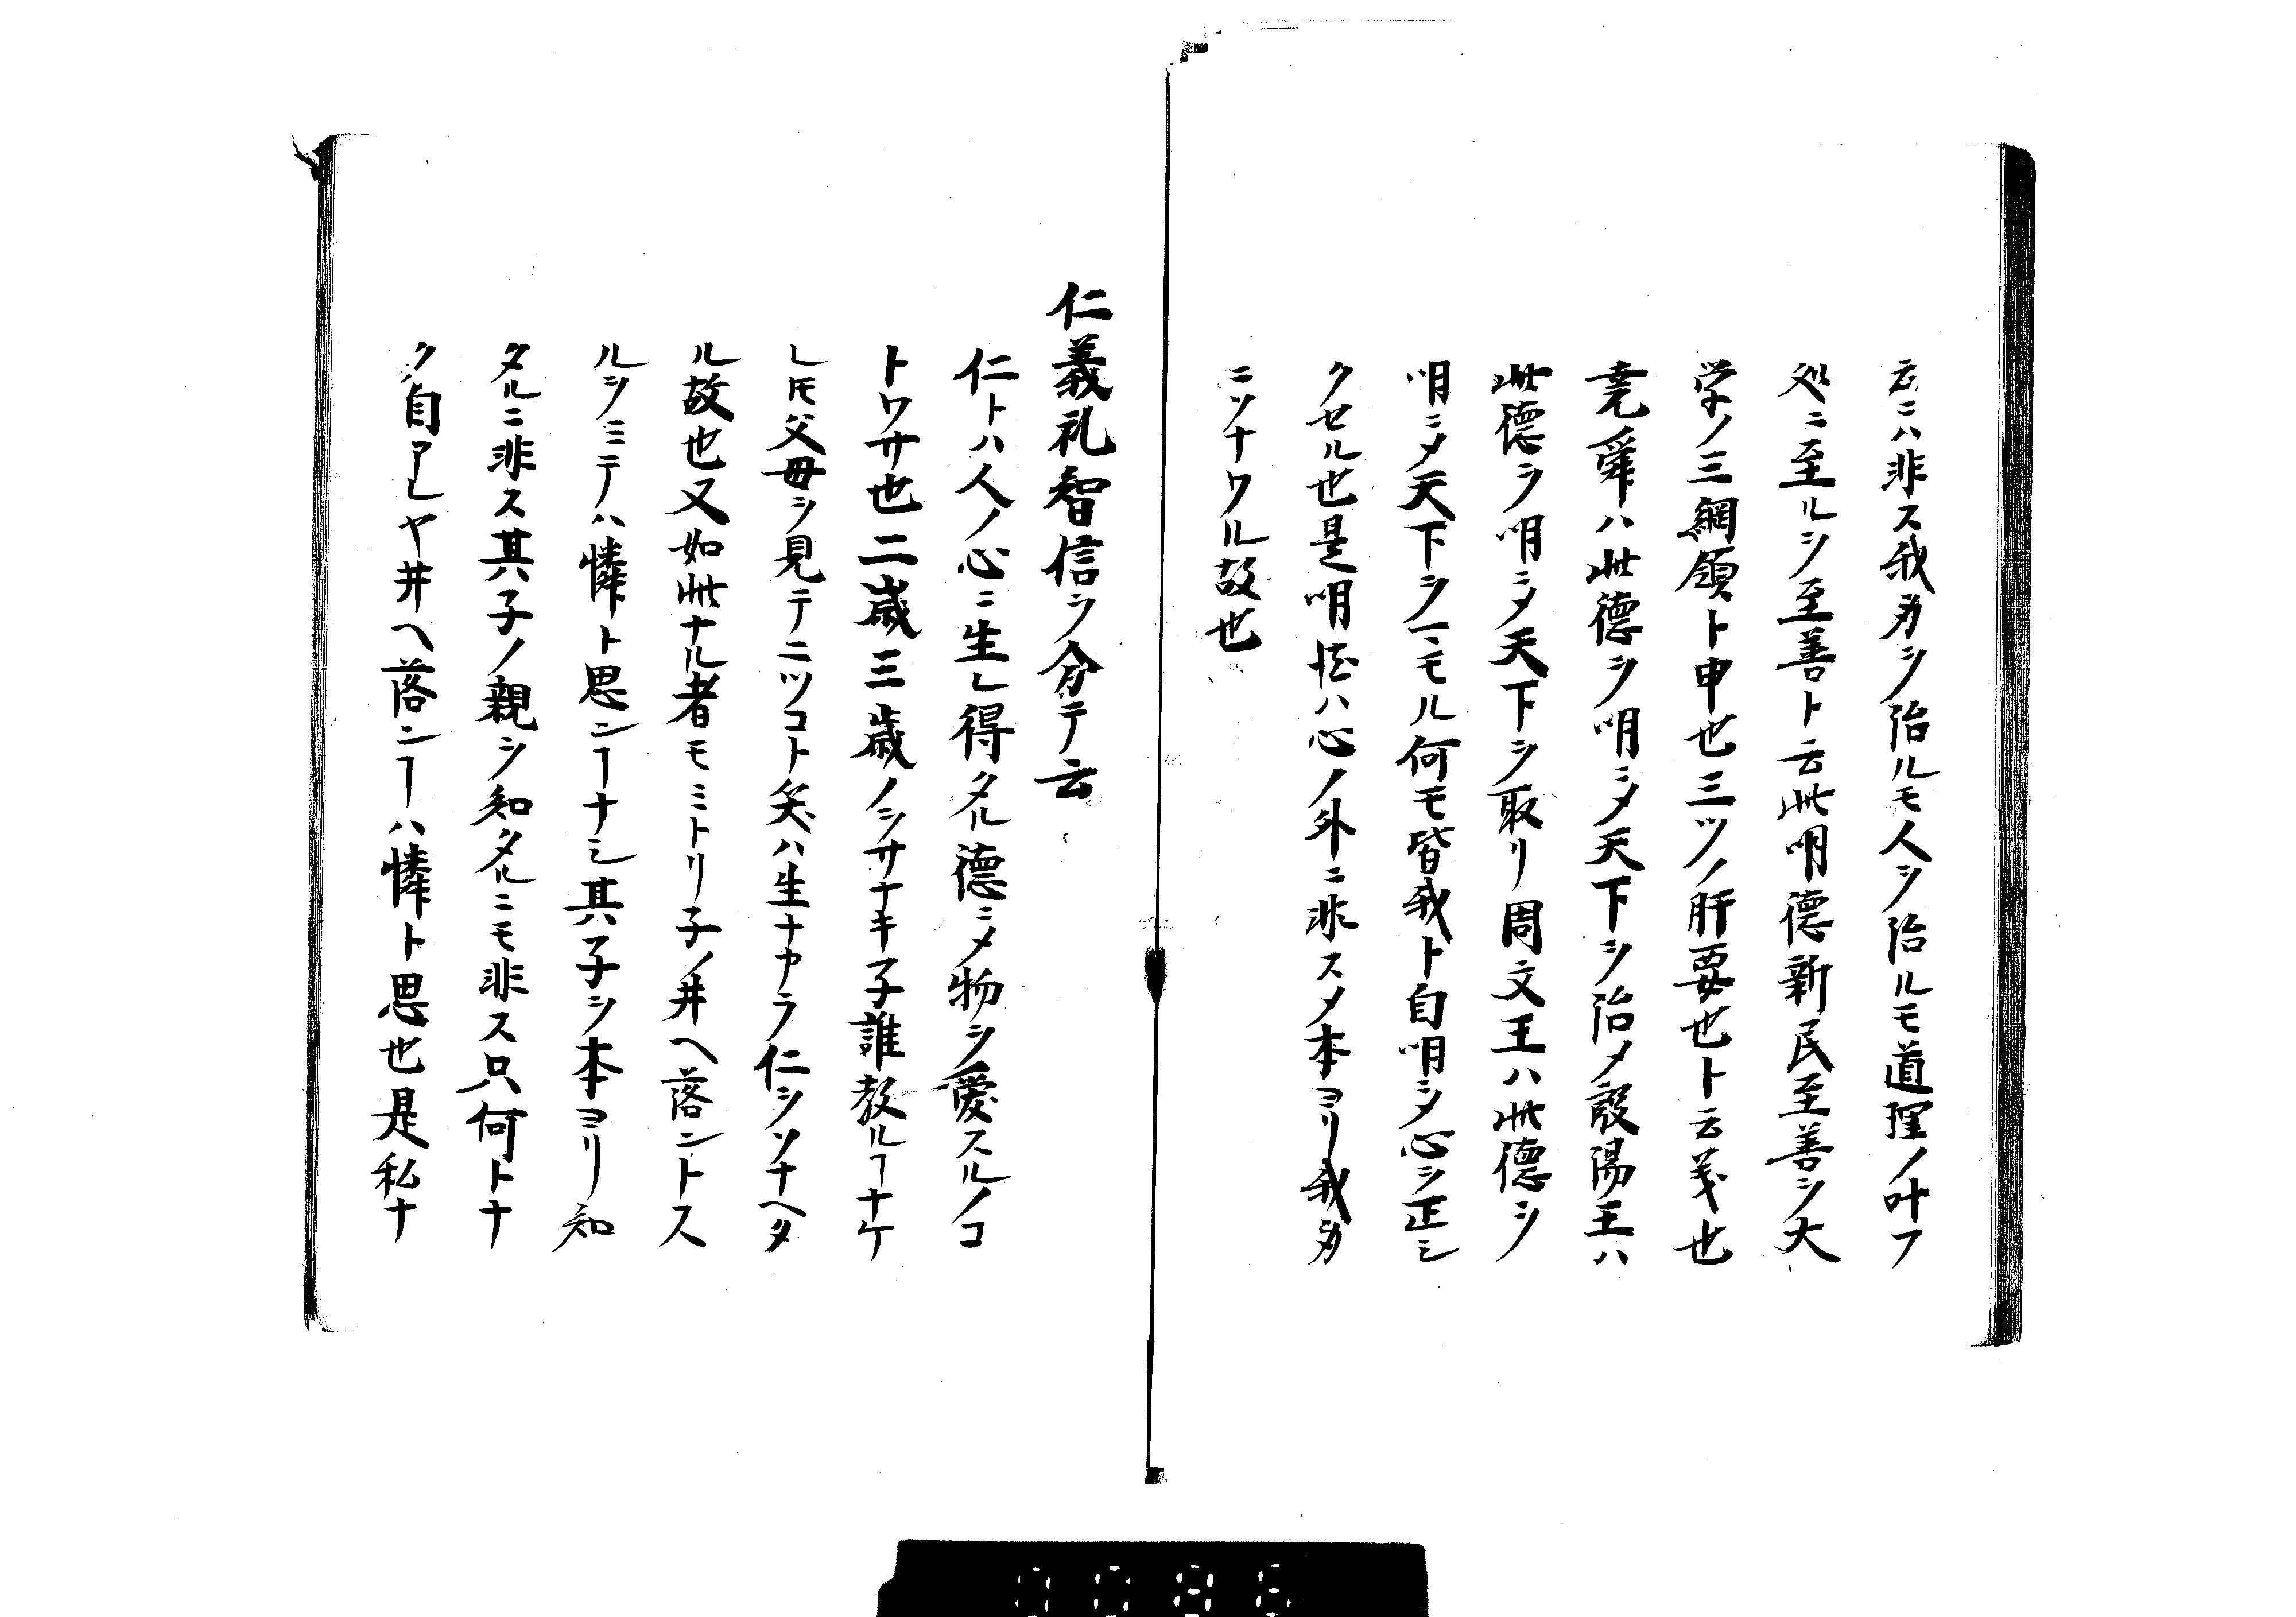 云ニハ非ス我身ヲ治ルモ人ヲ治ルモ道理ノ叶フ
処ニ至ルヲ至善ト云此明德新民至善ヲ大
学ノ三綱領ト申也三ツノ肝要也ト云義也
堯舜ハ此德ヲ明ニ〆天下ヲ治メ殷湯王ハ
此德ヲ明ニ〆天下ヲ取リ周文王ハ此德ヲ
明ニ〆天下ヲ一ニモル何モ皆我ト自明ニ〆心ヲ正シ
クセル也是明德ハ心ノ外ニ非ス〆本ヨリ我身
ニソナワル故也
仁義礼智信ヲ分テ云
仁トハ人ノ心ニ生レ得タル德ニ〆物ヲ愛スルノコ
トワサ也二歳三歳ノヲサナキ子誰教ルヿナケ
レ𪜈父母ヲ見テニツコト笑ハ生ナカラ仁ヲソナヘタ
ル故也又如此ナル者モミトリ子ノ井ヘ落ントス
ルヲミテハ憐ト思ンヿナシ其子ヲ本ヨリ知
タルニ非ス其子ノ親ヲ知タルニモ非ス只何トナ
ク自アレヤ井ヘ落ンヿハ憐ト思也是私ナ